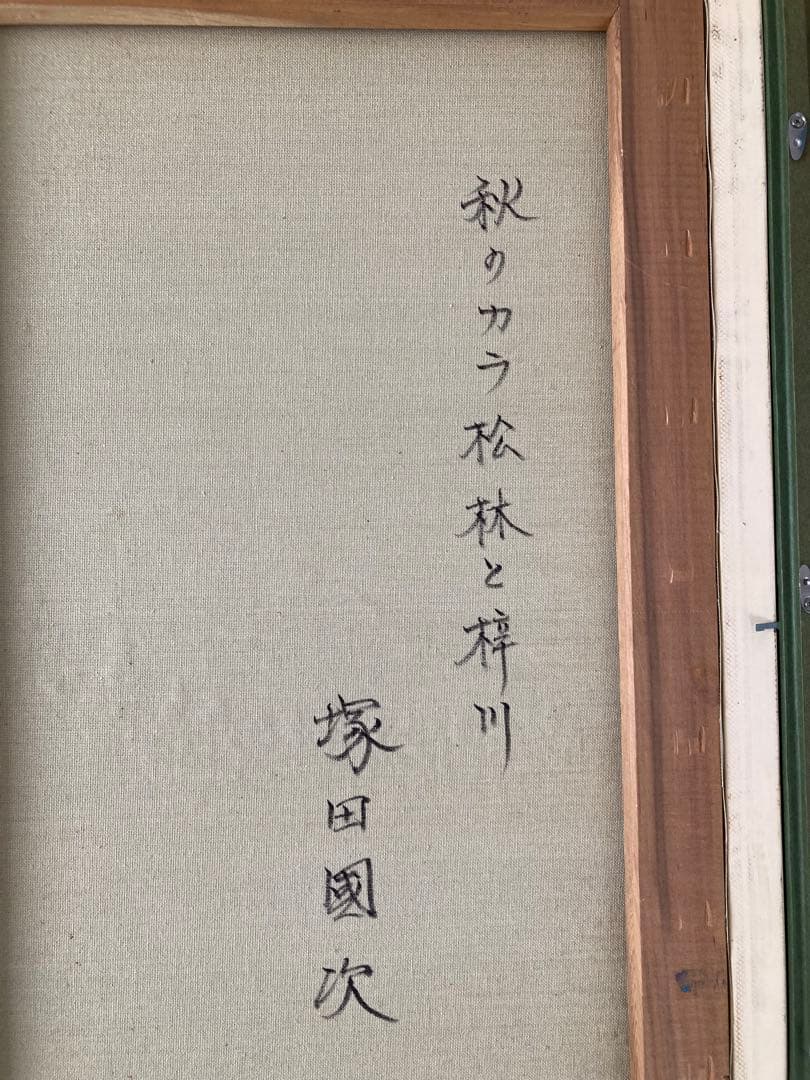 秋のカラ松林と梓川
塚田國次